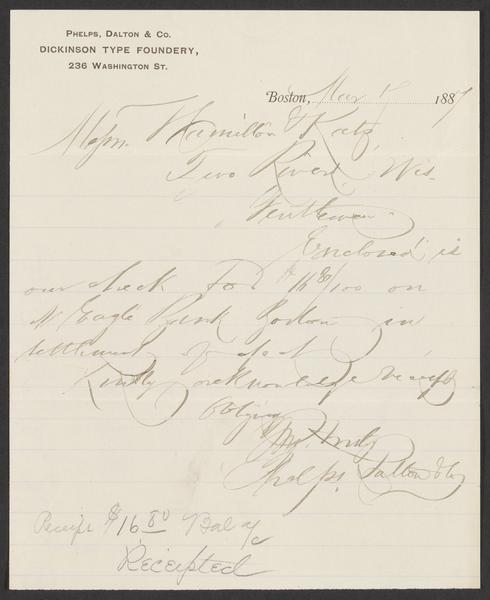 PHELPS, DALTON & CO.
DICKINSON TYPE FOUNDERY,
236 WASHINGTON ST.
Boston, Mar 1887
Messrs. Hamilton & Katz
Two Rivers, Wis-
Gentlemen
Enclosed is
our check for $16 80/100 on
N. Eagle Bank Boston in
settlement of acct
Kindly acknowledge receipt
Obliging
Yrs. truly
Phelps, Dalton & Co
Receipt $16 80 Bal a/c
Receipted